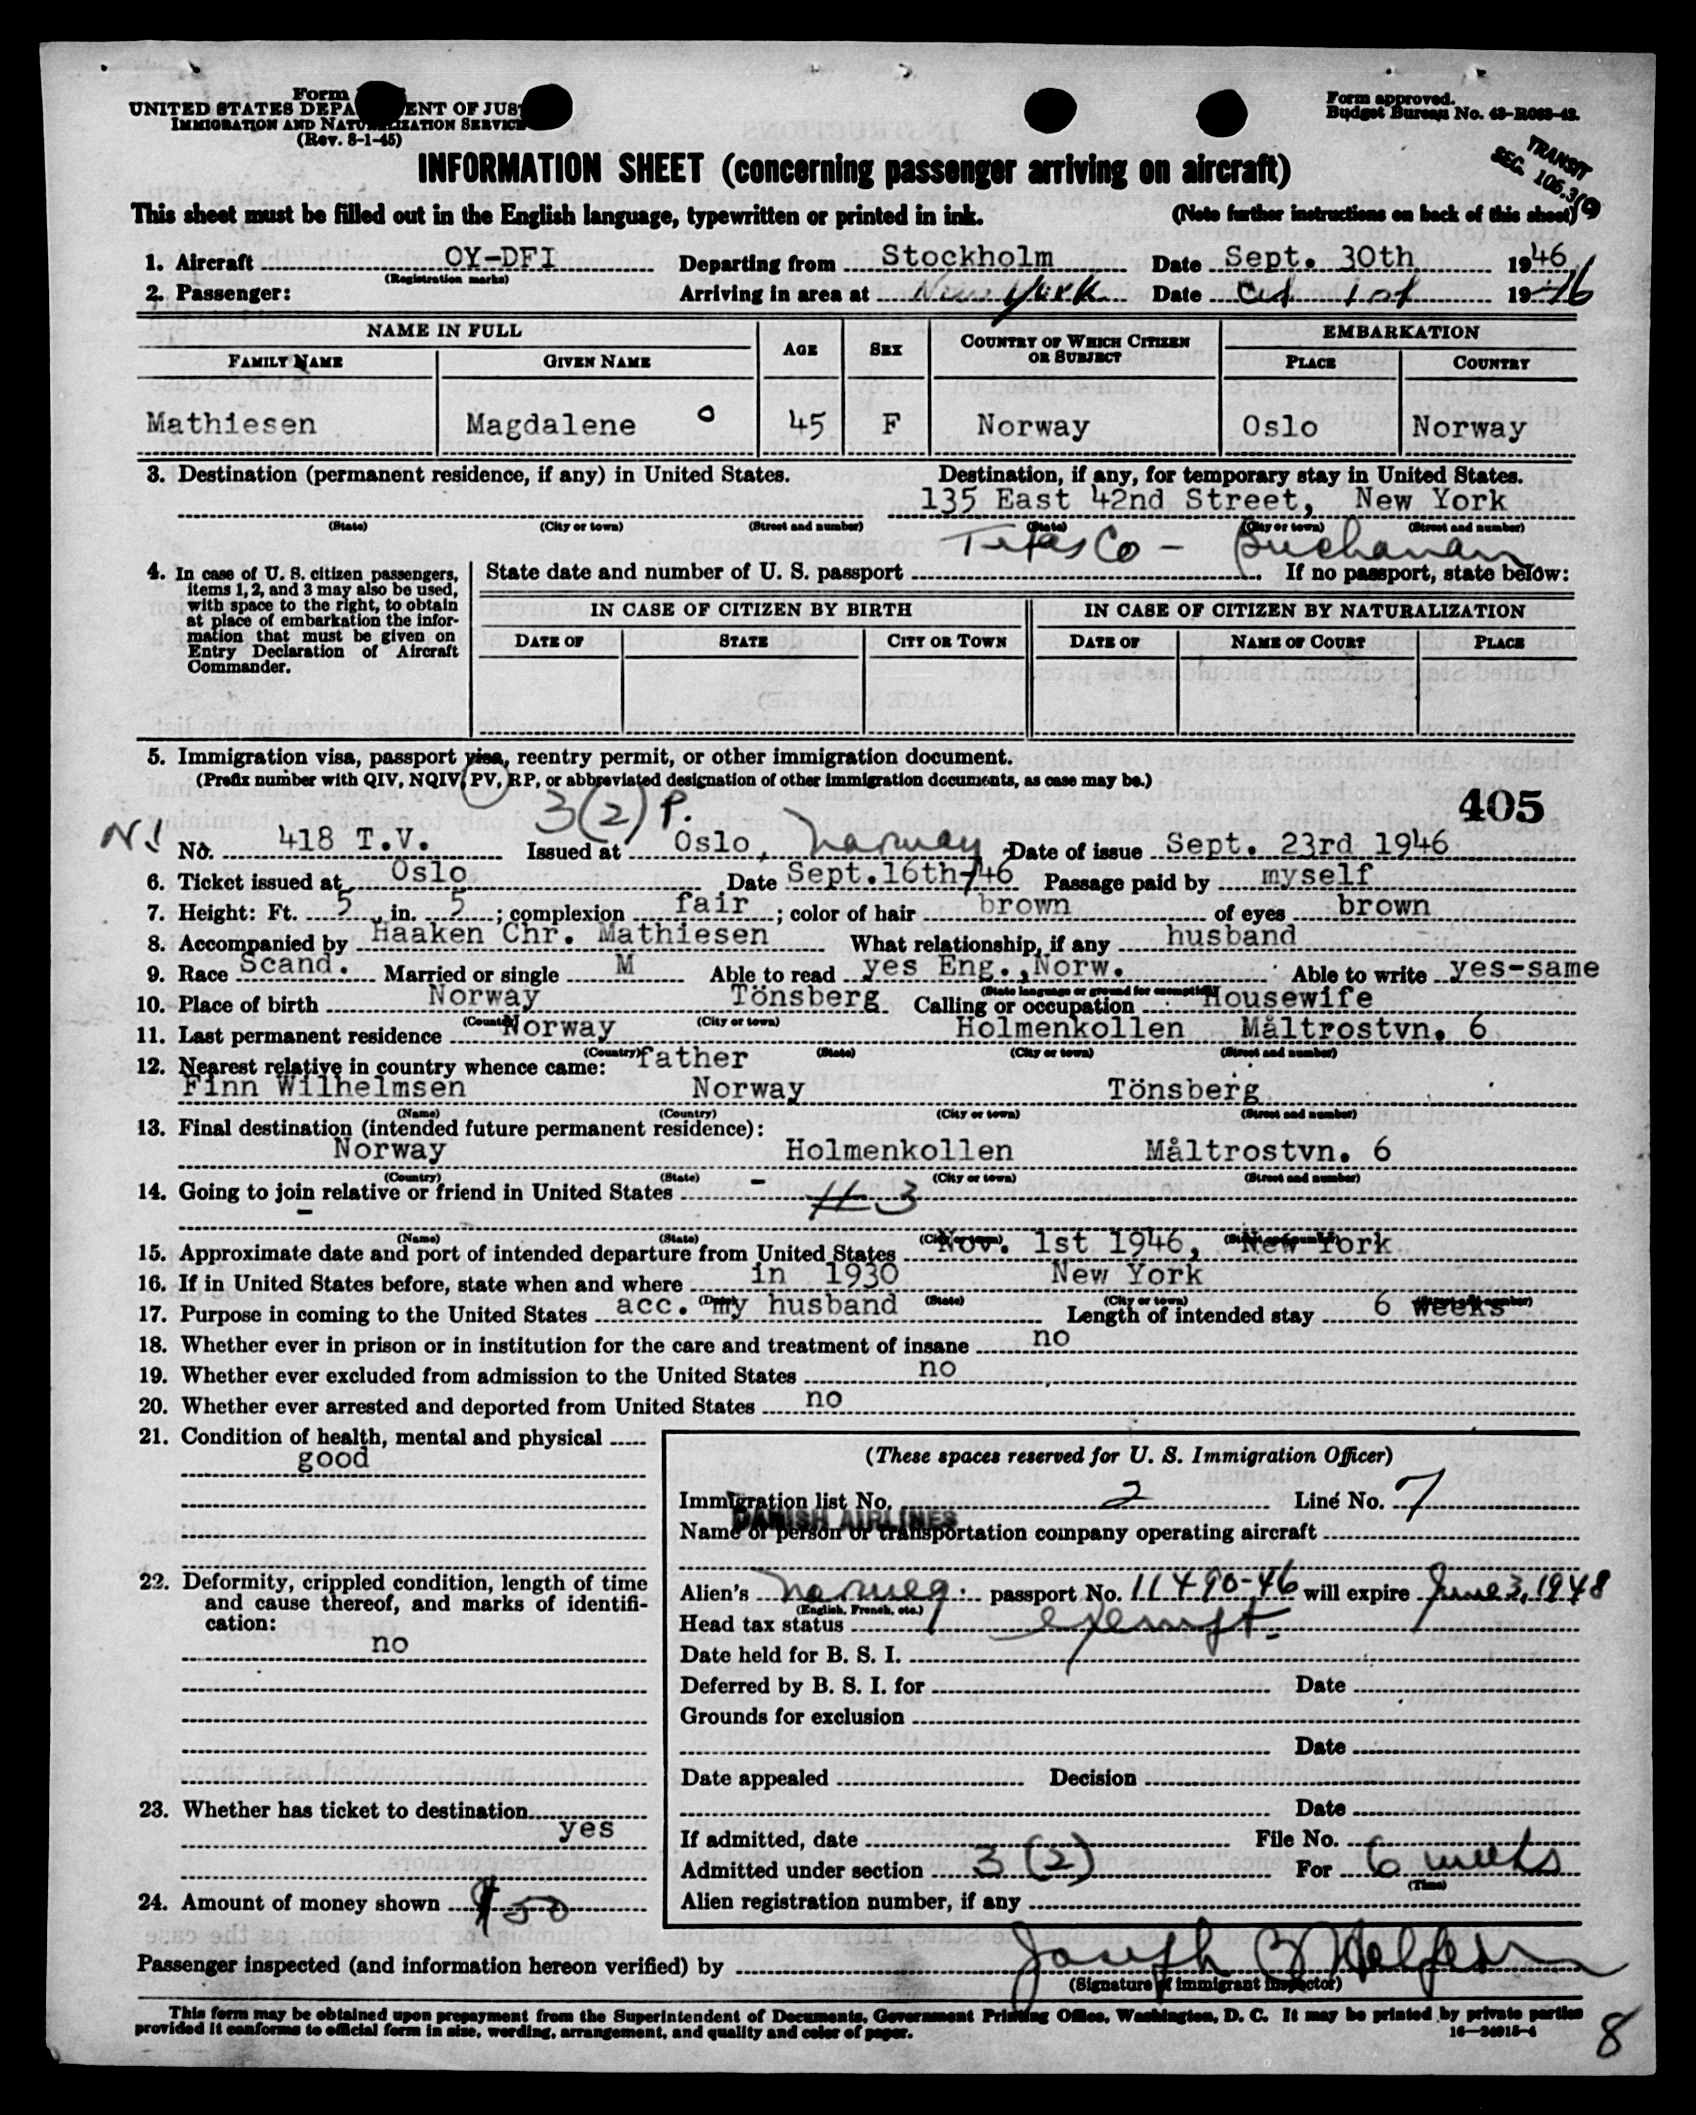 Form
UNITED STATES DEPA ENT OF JUS
IMMIGRATION AND NATU IZATION SERVICE
(Rev. 8-1-45)
Form approved.
Budget Bureau No. 43-R083-42.
TRANSIT
SEC. 106.3(9)
INFORMATION SHEET (concerning passenger arriving on aircraft)
This sheet must be filled out in the English language, typewritten or printed in ink. (Note further instructions on back of this sheet)
1. Aircraft OY-DFI Departing from Stockholm Date Sept. 30th 1946
(Registration marks)
2. Passenger: Arriving in area at New York Date Oct 1st 1946
NAME IN FULL AGE SEX COUNTRY OF WHICH CITIZEN OR SUBJECT EMBARKATION
FAMILY NAME GIVEN NAME PLACE COUNTRY
Mathiesen Magdalene o 45 F Norway Oslo Norway
3. Destination (permanent residence, if any) in United States. Destination, if any, for temporary stay in United States.
135 East 42nd Street, New York
(State) (City or town) (Street and number) (State) (City or town) (Street and number)
Texas Co - Buchanan
4. In case of U. S. citizen passengers, items 1, 2, and 3 may also be used, with space to the right, to obtain at place of embarkation the information that must be given on Entry Declaration of Aircraft Commander.
State date and number of U. S. passport If no passport, state below:
IN CASE OF CITIZEN BY BIRTH IN CASE OF CITIZEN BY NATURALIZATION
DATE OF STATE CITY OR TOWN DATE OF NAME OF COURT PLACE
5. Immigration visa, passport visa, reentry permit, or other immigration document.
(Prefix number with QIV, NQIV, PV, RP, or abbreviated designation of other immigration documents, as case may be.)
3(2) P.
405
N! No. 418 T.V. Issued at Oslo, Norway Date of issue Sept. 23rd 1946
6. Ticket issued at Oslo Date Sept.16th-46 Passage paid by myself
7. Height: Ft. 5, in. 5; complexion fair; color of hair brown of eyes brown
8. Accompanied by Haaken Chr. Mathiesen What relationship, if any husband
9. Race Scand. Married or single M Able to read yes Eng., Norw. Able to write yes-same
(State language or ground for exemption)
10. Place of birth Norway Tönsberg Calling or occupation Housewife
(Country) (City or town)
11. Last permanent residence Norway Holmenkollen Måltrostvn. 6
(Country) (State) (City or town) (Street and number)
12. Nearest relative in country whence came: father
Finn Wilhelmsen Norway Tönsberg
(Name) (Country) (City or town) (Street and number)
13. Final destination (intended future permanent residence):
Norway Holmenkollen Måltrostvn. 6
(Country) (State) (City or town) (Street and number)
14. Going to join relative or friend in United States - # 3
(Name) (State) (City or town) (Street and number)
15. Approximate date and port of intended departure from United States Nov. 1st 1946, New York
16. If in United States before, state when and where in 1930 New York
(Date) (State) (City or town) (Street and number)
17. Purpose in coming to the United States acc. my husband Length of intended stay 6 weeks
18. Whether ever in prison or in institution for the care and treatment of insane no
19. Whether ever excluded from admission to the United States no
20. Whether ever arrested and deported from United States no
21. Condition of health, mental and physical
good
22. Deformity, crippled condition, length of time and cause thereof, and marks of identification:
no
23. Whether has ticket to destination
yes
24. Amount of money shown $50
(These spaces reserved for U. S. Immigration Officer)
Immigration list No. 2 Line No. 7
DANISH AIRLINES
Name of person or transportation company operating aircraft
Alien's Norweg. passport No. 11490-46 will expire June 3, 1948
(English, French, etc.)
Head tax status exempt.
Date held for B. S. I.
Deferred by B. S. I. for Date
Grounds for exclusion
Date
Date appealed Decision
Date
If admitted, date File No.
Admitted under section 3(2) For 6 weeks
(Time)
Alien registration number, if any
Passenger inspected (and information hereon verified) by Joseph
(Signature of immigrant inspector)
This form may be obtained upon prepayment from the Superintendent of Documents, Government Printing Office, Washington, D. C. It may be printed by private parties
provided it conforms to official form in size, wording, arrangement, and quality and color of paper. 16-24915-4
8